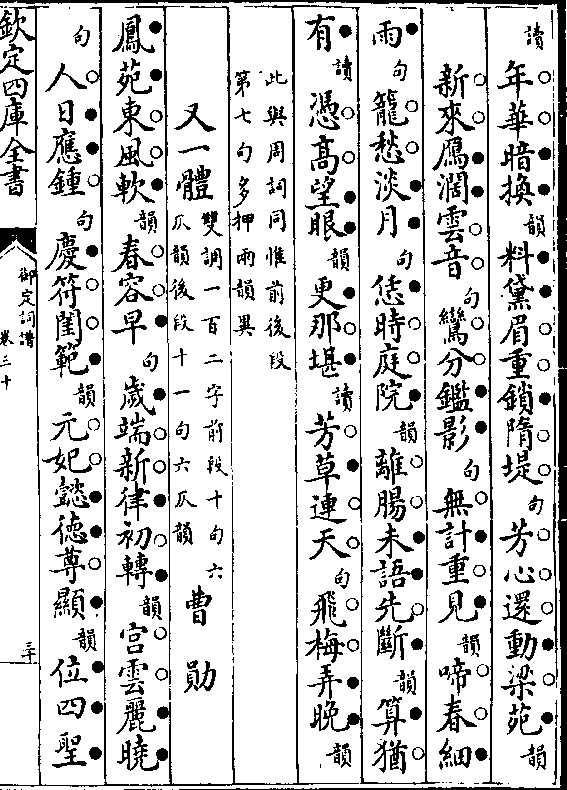 年華暗換韻料黛眉重鎖隋堤句芳心還動梁苑韻
新來鴈濶雲音句鸞分鑑影句無計重見韻啼春細
雨句籠愁淡月句恁時庭院韻離腸未語先斷韻算猶
有讀憑高望眼韻更那堪讀芳草連天句飛梅弄晚韻
此與周詞同惟前後段
第七句多押雨韻異
又一體 雙調一百二字前段十句六
仄韻後段十一句六仄韻 曹勛
鳳苑東風軟韻春容早句歲端新律初轉韻宫雲麗曉
句人日應鍾句慶符閨範韻元妃懿徳尊顯韻位四聖
欽定四庫全書
御定詞譜
卷三十
讀